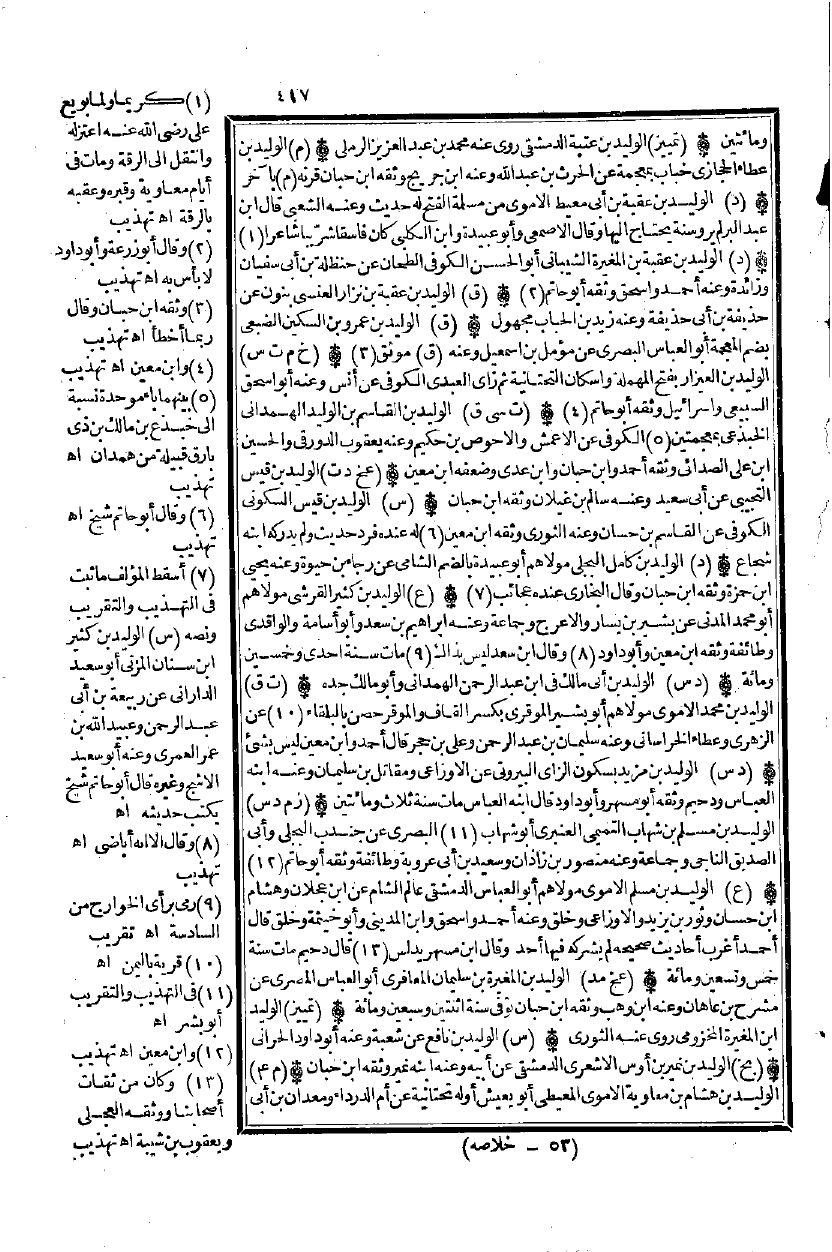 ٤١٧
ومائتين ۞ (تمييز) الوليد بن عتبة الدمشقى روى عنه محمد بن عبد العزيز الرملى ۞ (م) الوليد بن
عطاء الحجازى خباب بمعجمة عن الحرث بن عبد الله وعنه ابن جريج وثقه ابن حبان قرنه (م) بآخر
۞ (د) الوليد بن عقبة بن أبى معيط الاموى من مسلمة الفتح له حديث وعنه الشعبى قال ابن
عبد البر لم يرو سنة يحتاج اليها وقال الاصمعى وأبو عبيدة وابن الكلبى كان فاسقا شريبا شاعرا (١)
۞ (د) الوليد بن عقبة بن المغيرة الشيبانى أبو الحسن الكوفى الطحان عن حنظلة بن أبى سفيان
وزائدة وعنه أحمد واسحق وثقه أبو حاتم (٢) ۞ (ق) الوليد بن عقبة بن نزار العنسى بنون عن
حذيفة بن أبى حذيفة وعنه زيد بن الحباب مجهول ۞ (ق) الوليد بن عمرو بن السكين الضبعى
بضم المعجمة أبو العباس البصرى عن مؤمل بن اسمعيل وعنه (ق) موثق (٣) ۞ (خ م ت س)
الوليد بن العيزار بفتح المهملة واسكان التحتانية ثم زاى العبدى الكوفى عن أنس وعنه أبو اسحق
السبيعى واسرائيل وثقه أبو حاتم (٤) ۞ (ت سى ق) الوليد بن القاسم بن الوليد الهمدانى
الخبذعى بمعجمتين (٥) الكوفى عن الاعمش والاحوص بن حكيم وعنه يعقوب الدورقى والحسين
ابن على الصدائى وثقه أحمد وابن حبان وابن عدى وضعفه ابن معين ۞ (عخ د ت) الوليد بن قيس
التجيبى عن أبى سعيد وعنه سالم بن غيلان وثقه ابن حبان ۞ (س) الوليد بن قيس السكونى
الكوفى عن القاسم بن حسان وعنه الثورى وثقه ابن معين (٦) له عنده فرد حديث ولم يدركه ابنه
شجاع ۞ (د) الوليد بن كامل البجلى مولاهم أبو عبيدة بالضم الشامى عن رجاء بن حيوة وعنه يحيى
ابن حمزة وثقه ابن حبان وقال البخارى عنده عجائب (٧) ۞ (ع) الوليد بن كثير القرشى مولاهم
أبو محمد المدنى عن بشير بن يسار والاعرج وجماعة وعنه ابراهيم بن سعد وأبو أسامة والواقدى
وطائفة وثقه ابن معين وأبو داود (٨) وقال ابن سعد ليس بذاك (٩) مات سنة احدى وخمسين
ومائة ۞ (د س) الوليد بن أبى مالك فى ابن عبد الرحمن الهمدانى وأبو مالك جده ۞ (ت ق)
الوليد بن محمد الاموى مولاهم أبو بشير الموقرى بكسر القاف والموقر حصن بالبلقاء (١٠) عن
الزهرى وعطاء الخراسانى وعنه سليمان بن عبد الرحمن وعلى بن حجر قال أحمد وابن معين ليس بشئ
۞ (د س) الوليد بن مزيد بسكون الزاى البيروتى عن الاوزاعى ومقاتل بن سليمان وعنه ابنه
العباس ودحيم وثقه أبو مسهر وأبو داود قال ابنه العباس مات سنة ثلاث ومائتين ۞ (ز م د س)
الوليد بن مسلم بن شهاب التميمى العنبرى أبو شهاب (١١) البصرى عن جندب البجلى وأبى
الصديق الناجى وجماعة وعنه منصور بن زاذان وسعيد بن أبى عروبة وطائفة وثقه أبو حاتم (١٢)
۞ (ع) الوليد بن مسلم الاموى مولاهم أبو العباس الدمشقى عالم الشام عن ابن عجلان وهشام
ابن حسان وثور بن يزيد والاوزاعى وخلق وعنه أحمد واسحق وابن المدينى وأبو خيثمة وخلق قال
أحمد أغرب أحاديث صحيحة لم يشركه فيها أحد وقال ابن مسهر يدلس (١٣) قال دحيم مات سنة
خمس وتسعين ومائة ۞ (عخ مد) الوليد بن المغيرة بن سليمان المعافرى أبو العباس المصرى عن
مشرح بن عاهان وعنه ابن وهب وثقه ابن حبان توفى سنة اثنتين وسبعين ومائة ۞ (تمييز) الوليد
ابن المغيرة المخزومى روى عنه الثورى ۞ (س) الوليد بن نافع عن شعبة وعنه أبو داود الحرانى
۞ (بخ) الوليد بن نمير بن أوس الاشعرى الدمشقى عن أبيه وعنه ابنه نمير وثقه ابن حبان ۞ (م ٤)
الوليد بن هشام بن معاوية الاموى المعيطى أبو يعيش أوله تحتانية عن أم الدرداء ومعدان بن أبى
(١) كريما ولما بويع
على رضى الله عنه اعتزله
وانتقل الى الرقة ومات فى
أيام معاوية وقبره وعقبه
بالرقة اه تهذيب
(٢) وقال أبو زرعة وأبو داود
لا بأس به اه تهذيب
(٣) وثقه ابن حبان وقال
ربما أخطأ اه تهذيب
(٤) وابن معين اه تهذيب
(٥) بينهما باء موحدة نسبة
الى خبذع بن مالك بن ذى
بارق قبيلة من همدان اه
تهذيب
(٦) وقال أبو حاتم شيخ اه
تهذيب
(٧) أسقط المؤلف ما ثبت
فى التهذيب والتقريب
ونصه (س) الوليد بن كثير
ابن سنان المزنى أبو سعيد
الدارانى عن ربيعة بن أبى
عبد الرحمن وعبيد الله بن
عمر العمرى وعنه أبو سعيد
الاشج وغيره قال أبو حاتم شيخ
يكتب حديثه اه
(٨) وقال الا انه أباضى اه
تهذيب
(٩) رمى برأى الخوارج من
السادسة اه تقريب
(١٠) قرية باليمن اه
(١١) فى التهذيب والتقريب
أبو بشر اه
(١٢) وابن معين اه تهذيب
(١٣) وكان من ثقات
أصحابنا ووثقه العجلى
ويعقوب بن شيبة اه تهذيب
(٥٣ - خلاصه)